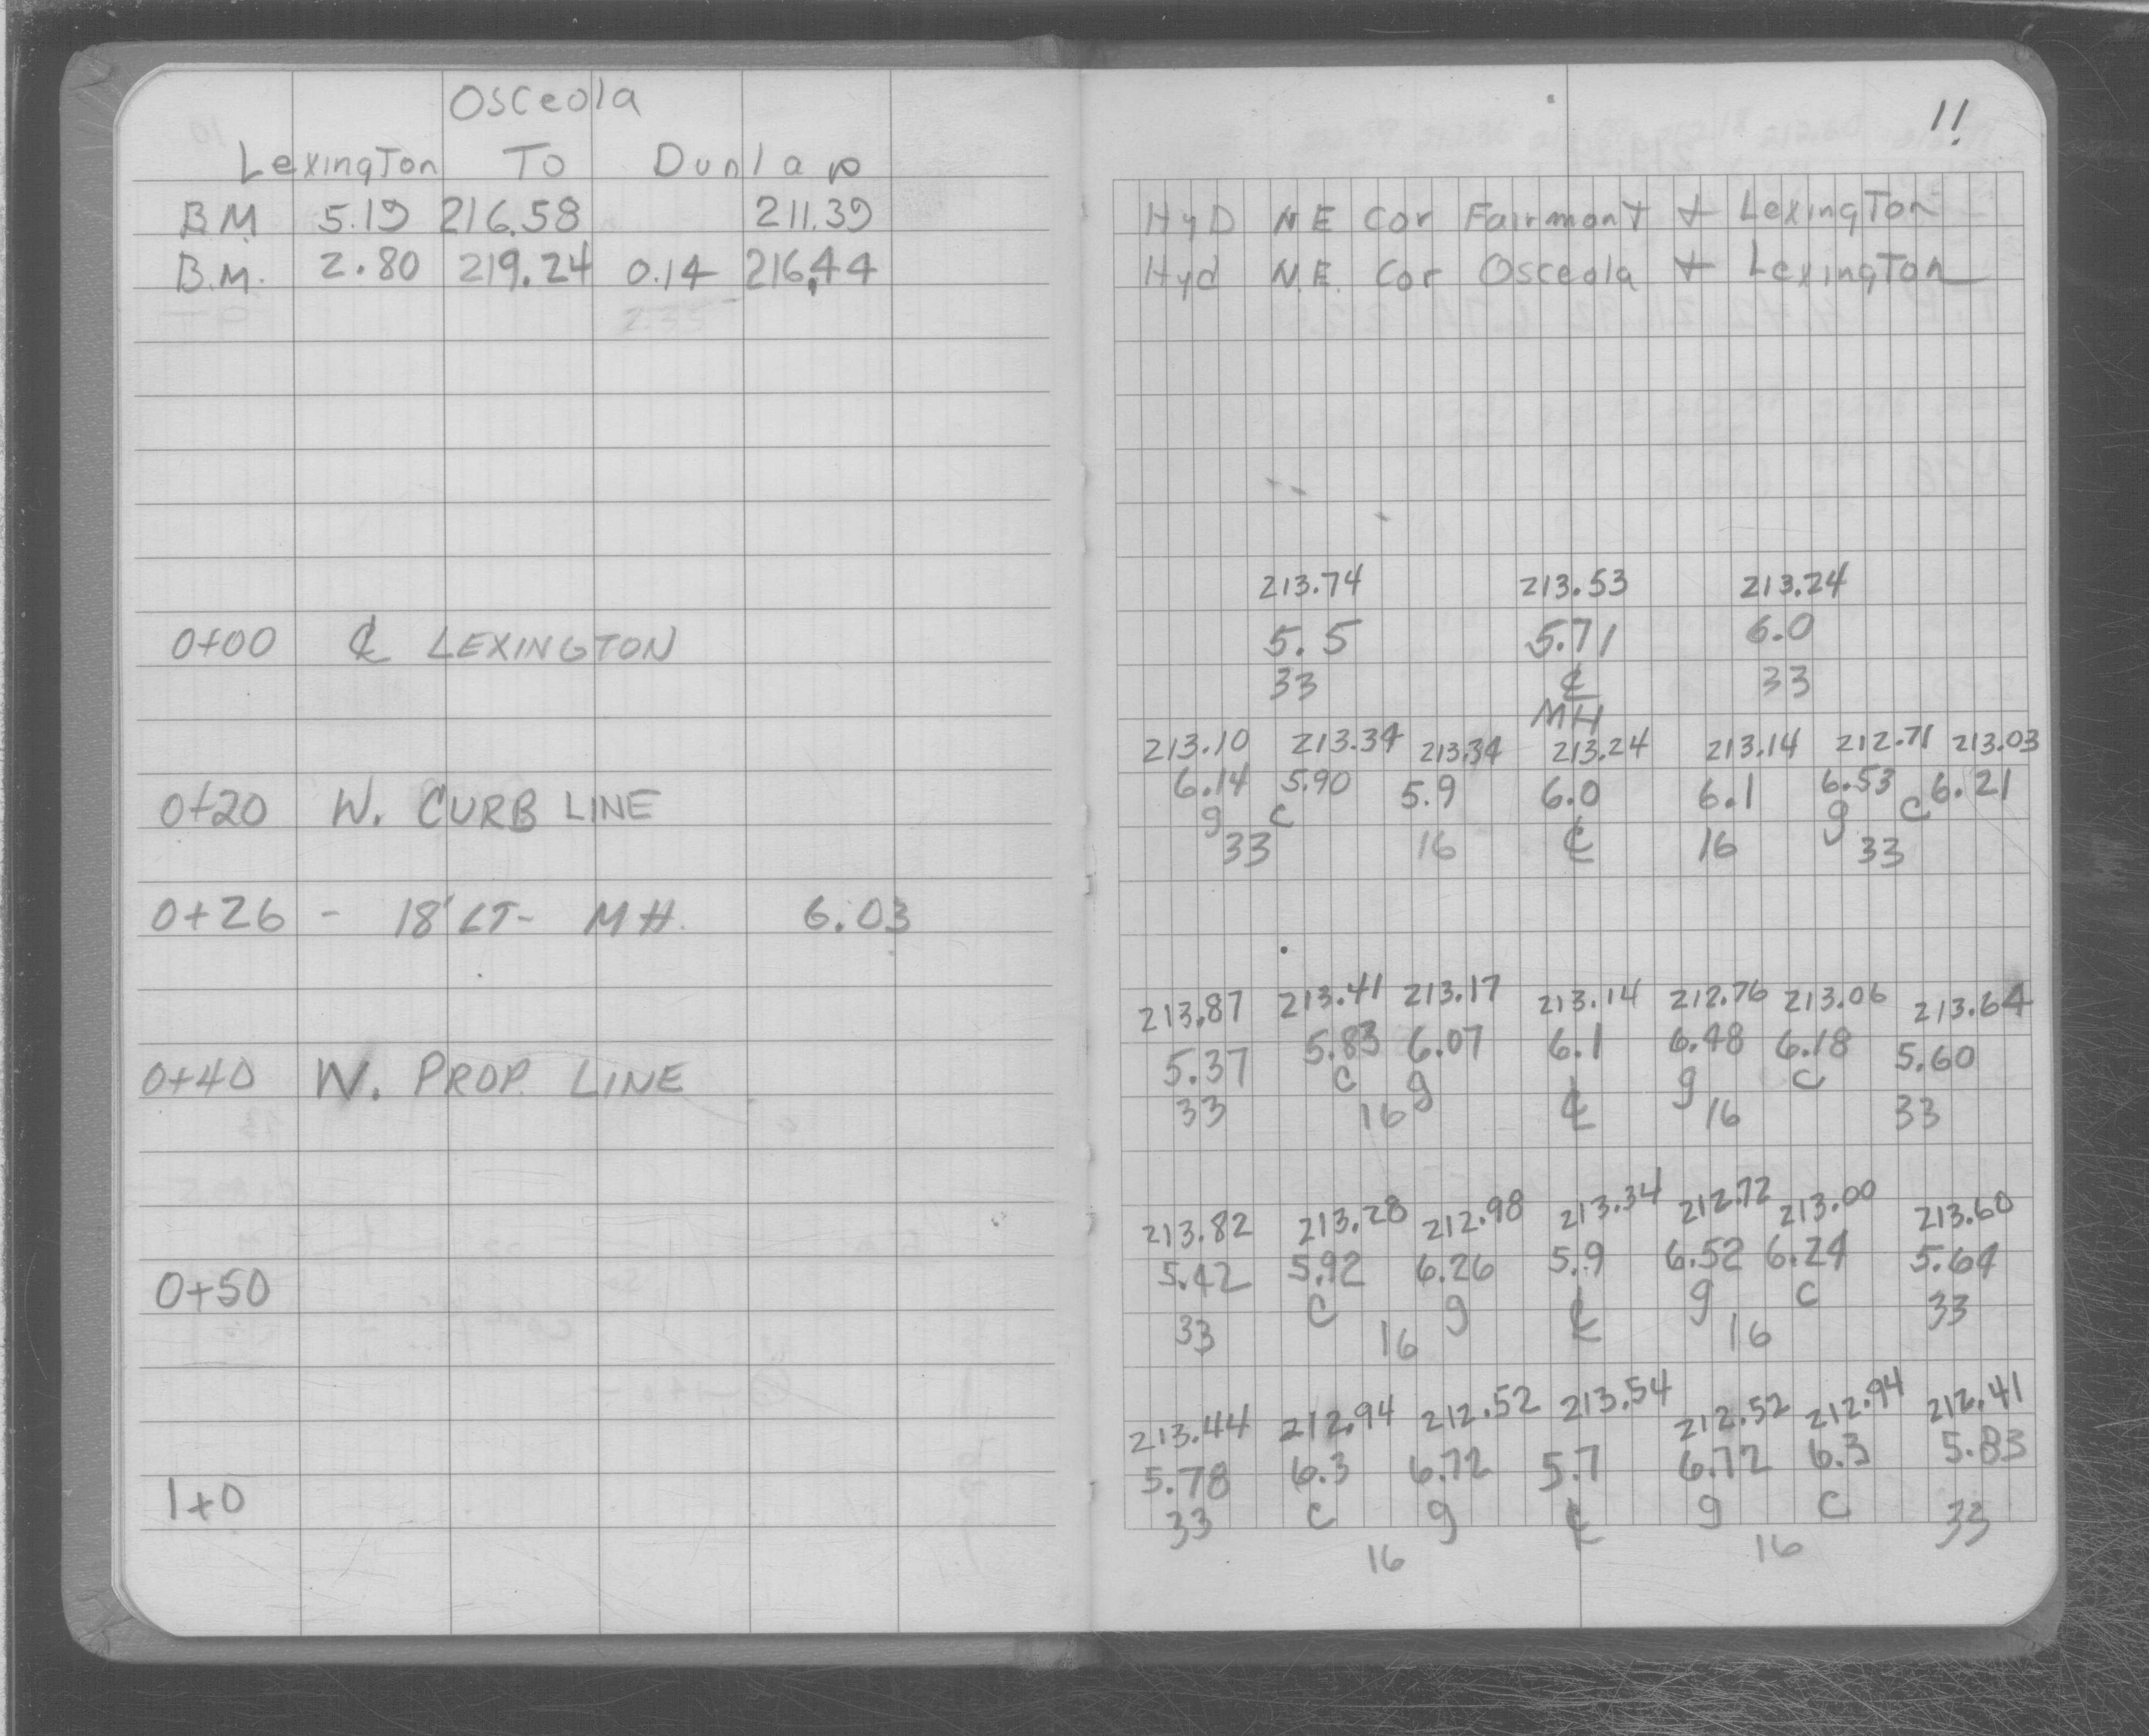 Osceola
Lexington To Dunlap
B.M. 5.19 216.58 211.39
B.M. 2.80 219.24 0.14 216.44
0+00 ℄ LEXINGTON
0+20 W. CURB LINE
0+26 - 18' LT- MH. 6.03
0+40 W. PROP. LINE
0+50
1+0
11
HyD N E Cor Fairmont + Lexington
Hyd N.E. Cor Osceola + Lexington
213.74 213.53 213.24
5.5 5.71 6.0
33 ℄ 33
MH
213.10 213.34 213.34 213.24 213.14 212.71 213.03
6.14 5.90 5.9 6.0 6.1 6.53 6.21
g c g c
33 16 ℄ 16 33
213.87 213.41 213.17 213.14 212.76 213.06 213.64
5.37 5.83 6.07 6.1 6.48 6.18 5.60
c g g c
33 16 ℄ 16 33
213.82 213.28 212.98 213.34 212.72 213.00 213.60
5.42 5.92 6.26 5.9 6.52 6.24 5.64
33 c g ℄ g c 33
16 16
213.44 212.94 212.52 213.54 212.52 212.94 212.41
5.78 6.3 6.72 5.7 6.72 6.3 5.83
33 c g ℄ g c 33
16 16